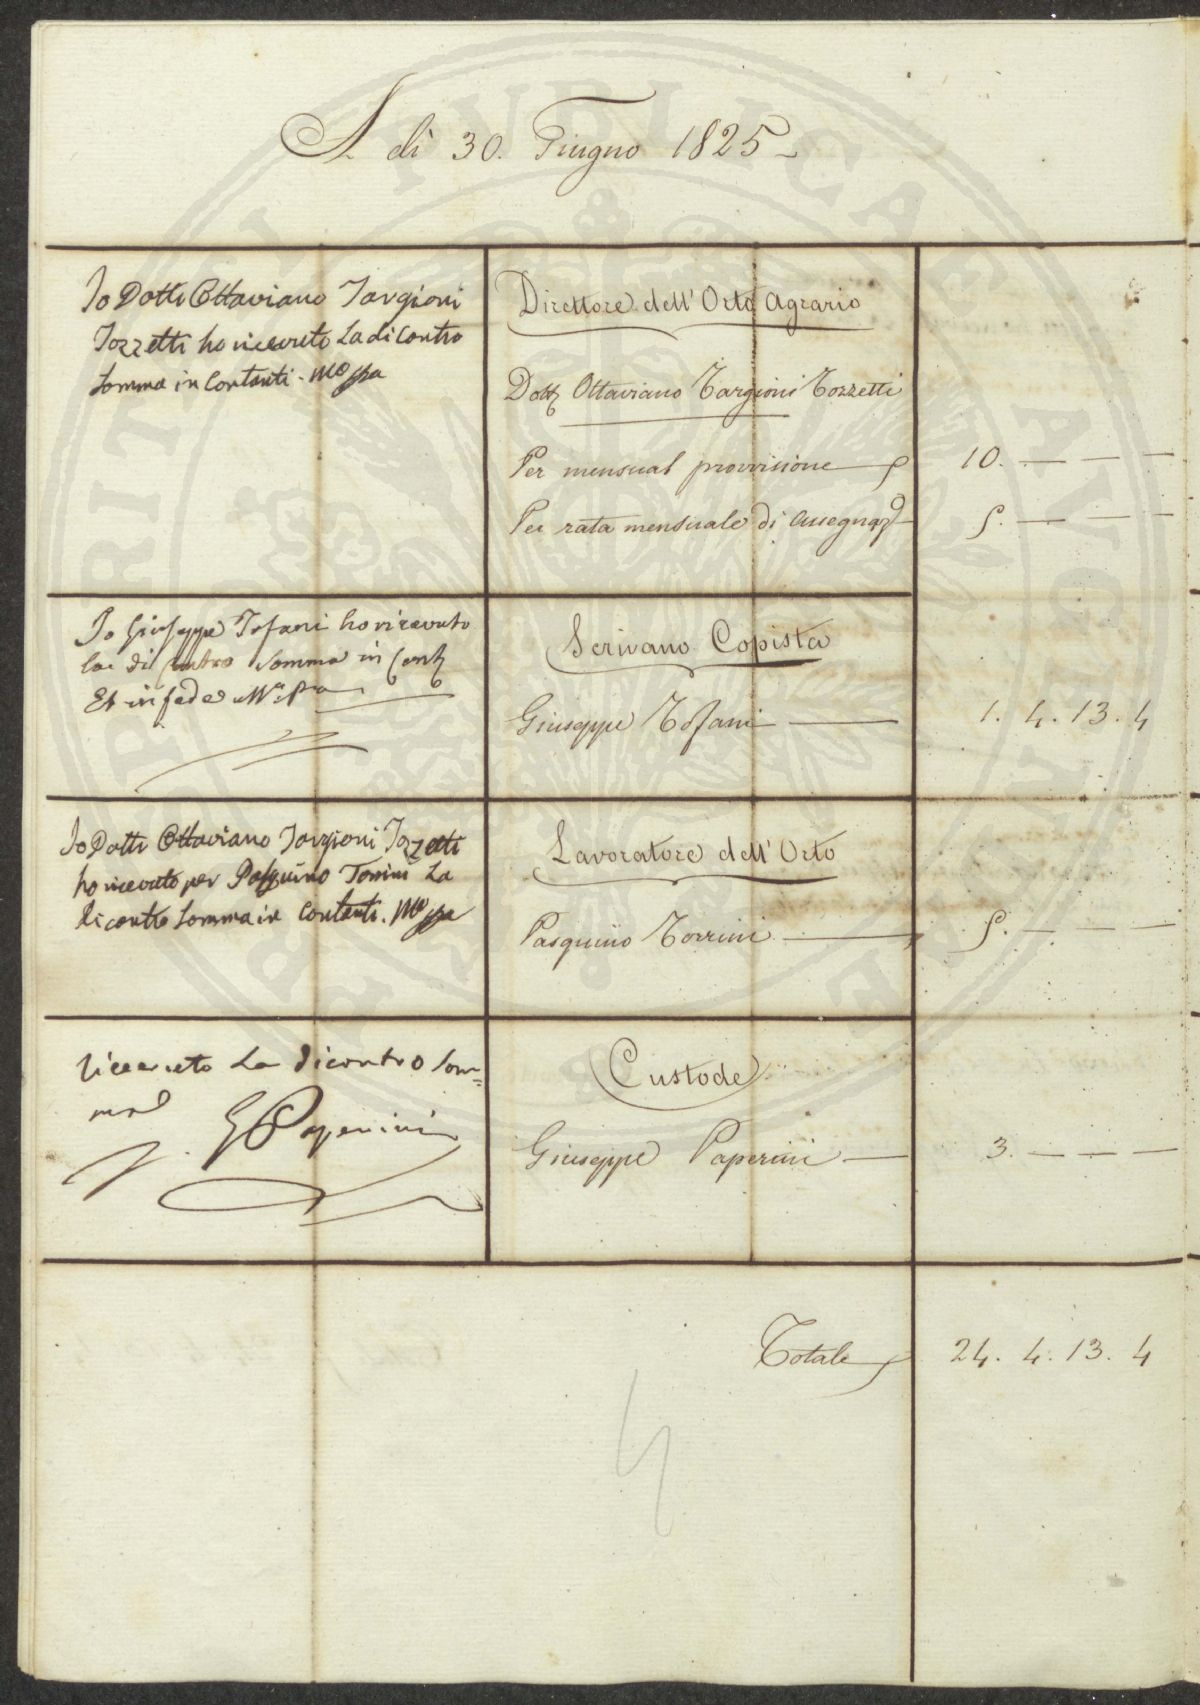 A dì 30. Giugno 1825
Io Dott. Ottaviano Targioni
Tozzetti ho ricevuto La di Contro
Somma in Contanti. Mo ppa
Direttore dell'Orto Agrario
Dott. Ottaviano Targioni Tozzetti
Per mensual provvisione 10. — — —
Per rata mensuale di 5. — — —
Io Giuseppe Tofani ho ricevuto
la di Contro Somma in Conti
Et in fede Mo Pa
Scrivano Copista
Giuseppe Tofani — 1. 4. 13. 4
Io Dott. Ottaviano Targioni Tozzetti
ho ricevuto per Pasquino Torrini La
di contro Somma in Contanti. Mo ppa
Lavoratore dell'Orto
Pasquino Torrini — 5. — — —
Ricevuto La dicontro Som=
ma
G Paperini
Custode
Giuseppe Paperini — 3. — — —
Totale 24. 4. 13. 4